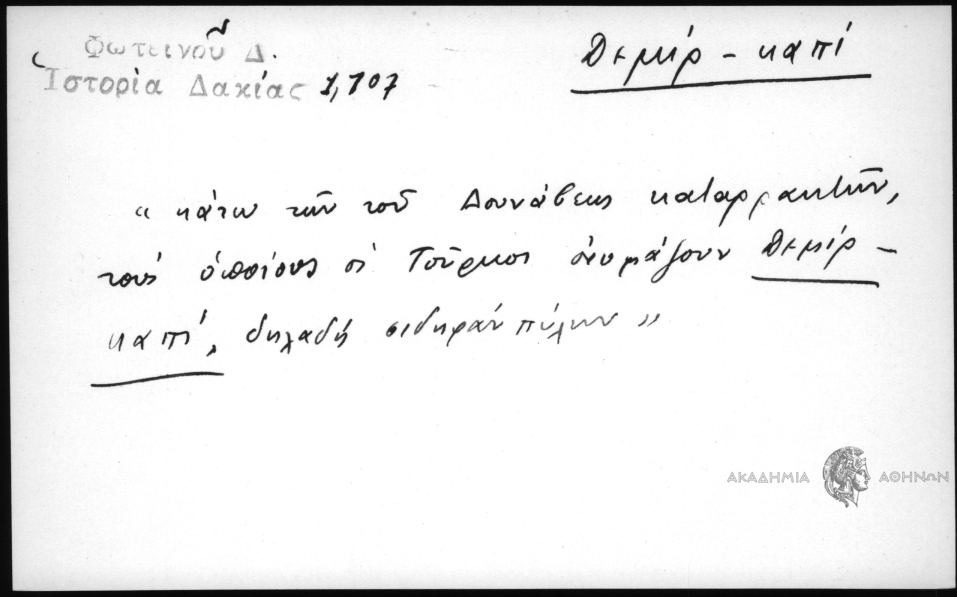 Φωτεινοῦ Δ.
Ἱστορία Δακίας 1,107
Δεμίρ - καπί
“ κάτω τῶν τοῦ Δουνάβεως καταρρακτῶν,
τούς ὁποίους οἱ Τοῦρκοι ὀνομάζουν Δεμίρ -
καπί, δηλαδή σιδηράν πύλην ”
ΑΚΑΔΗΜΙΑ ΑΘΗΝΩΝ